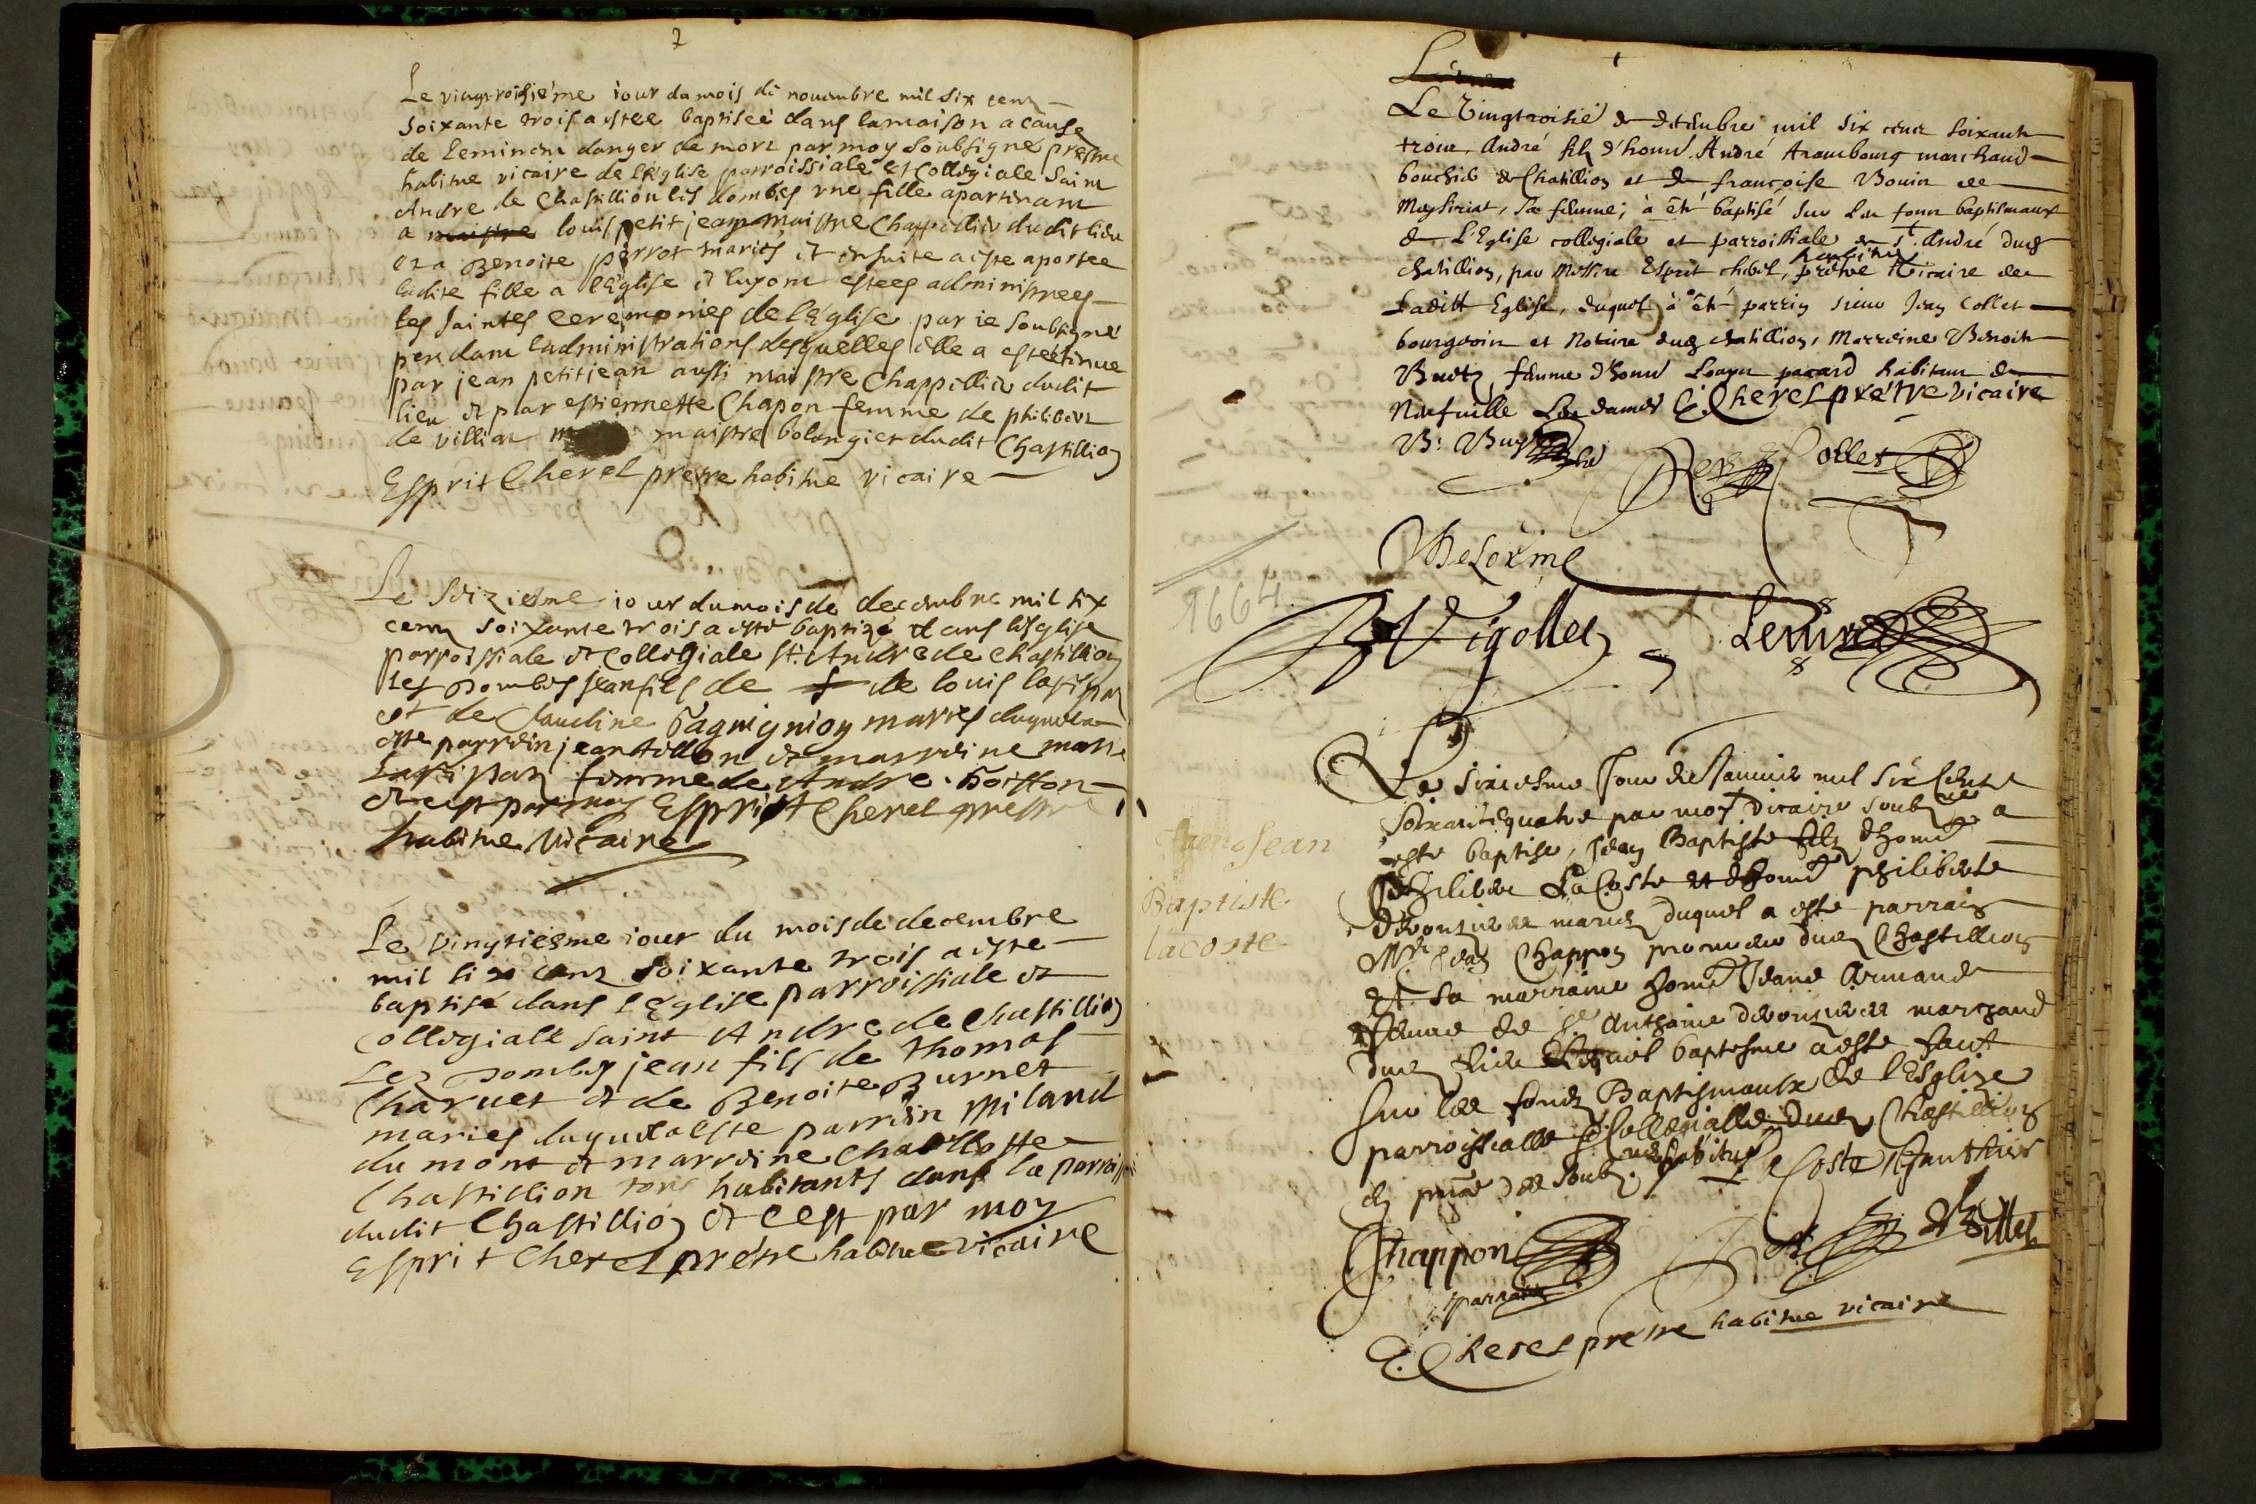 Le vingtroisiéme iour du mois de nouembre mil six cens
soixante trois a estee baptiseé dans la maison a cause
de leminent danger de mort par moy soubsigné prestre
habitué vicaire de l'Eglise parroissiale et collegiale saint
Andre de Chastillion les dombes une fille apartenant
a maistre louis petit jean maistre Chappellier dudit lieu
et a Benoite perrot mariés et ensuite a este aportee
ladite fille a l'Eglise et luy ont estees administrees
les saintes ceremonies de l'Eglise par ie soubsigné
pendant ladministrations desquelles elle a estee tenue
par jean petitjean aussi maistre Chappellier dudit
lieu et par estiennette Chapon femme de philibert
de villiar maistre bolangier dudit Chastillion
Esprit Cherel prestre habitué vicaire
Le seiziesme iour du mois de decembre mil six
cens soixante trois a esté baptizé dans l'esglise
parroissiale et Collegiale St. Andre de Chastillion
les Dombes jean fils de de louis
et de Claudine mariés duquel a
este parrein jean et marreine
femme de Andre
et cest par moy Esprit Cherel prestre
habitué vicaire
Le vingtiesme iour du mois de decembre
mil six cens soixante trois a este
baptisé dans l'Eglise parroissiale et
collegiale saint Andre de Chastillion
Les Dombes jean fils de Thomas
Charuet et de Benoite Burnet
mariés duquel a este parrein Miland
du mont et marreine Charllotte
Chastillion tous habitants dans la parroisse
dudit Chastillion et cest par moy
Esprit Cherel prétre habitué vicaire
Le Vingtroisié de decembre mil six cens soixante
trois, André fils d'hono André Arambourg marchand
bouchie de Chatillion et de françoise Bouin de
Meysiriat, sa femme; à été baptisé sur les fonts baptismaux
de L'Eglise collegiale et parroissiale de St. André dud
chatillion, par Messire Esprit cherel, prétre habitué vicaire de
Laditte Eglise, duquel à été parrin sieur Jean Collet
bourgeois et Notaire dud chatillion, Marreine Benoite
femme d'hono pacard habitant de
Neufuille Les dames E. Cherel prétre vicaire
Collet
Delorme
1664
Vigollet
Jean
Baptiste
lacoste
Le sixiesme Jour de Januier mil six Cents
soixante quatre par moy vicaire soubné a
esté baptise, Jean Baptiste filz d'hono
philibert La Coste et d'hono philiberte
mariez duquel a este parrain
Mre Jean Chappon procureur dud Chastillion
et sa marraine hono Jeane Armand
femme de Sr Anthoine marchand
dud lieu Lequel baptesme a este faict
sur les fonds Baptismaulx de l'Esglize
parroissialle et Collegialle dud Chastillion
habitué La Coste
Chappon
parrain
E. Cherel prestre habitué vicaire